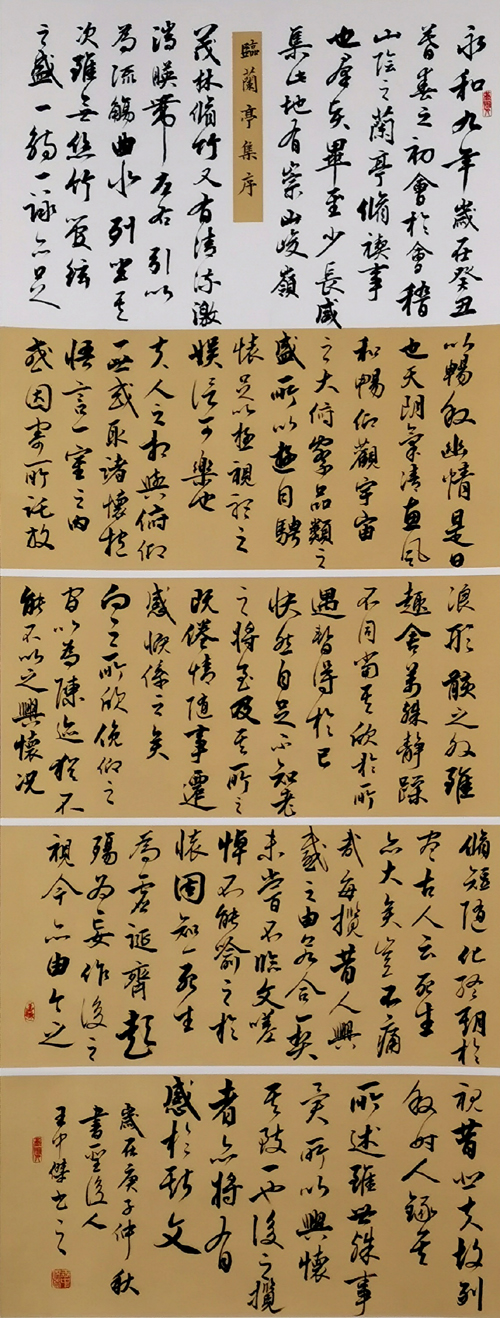 永和九年歲在癸丑
暮春之初會於會稽
山陰之蘭亭脩禊事
也羣賢畢至少長咸
集此地有崇山峻嶺
臨蘭亭集序
茂林脩竹又有清流激
湍暎帶左右引以
為流觴曲水列坐其
次雖無絲竹管絃
之盛一觴一詠亦足
以暢敘幽情是日
也天朗氣清惠風
和暢仰觀宇宙
之大俯察品類之
盛所以遊目騁
懷足以極視聽之
娛信可樂也
夫人之相與俯仰
一世或取諸懷抱
悟言一室之內
或因寄所託放
浪形骸之外雖
趣舍萬殊靜躁
不同當其欣於所
遇暫得於己
快然自足不知老
之將至及其所之
既倦情隨事遷
感慨係之矣
向之所欣俛仰之
間以為陳迹猶不
能不以之興懷況
脩短隨化終期於
盡古人云死生
亦大矣豈不痛
哉每攬昔人興
感之由若合一契
未嘗不臨文嗟
悼不能喻之於
懷固知一死生
為虛誕齊彭
殤為妄作後之
視今亦由今之
視昔悲夫故列
敘時人錄其
所述雖世殊事
異所以興懷
其致一也後之攬
者亦將有
感於斯文
歲在庚子仲秋
書聖後人
王中傑書之